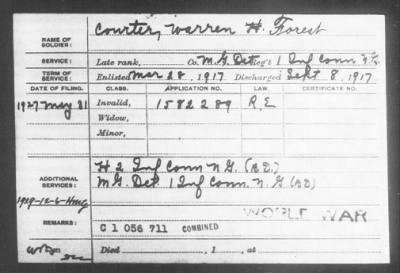 Courter, Warren H. Forest
NAME OF SOLDIER:
SERVICE: Late rank, Co. M.G. Det Reg't 1 Inf Conn N.G.
TERM OF SERVICE: Enlisted Mar 28, 1917, Discharged Sept 8, 1917
DATE OF FILING. CLASS. APPLICATION NO. LAW. CERTIFICATE NO.
1927 May 31 Invalid, 1582289 R.E
Widow,
Minor,
ADDITIONAL SERVICES: H 2 Inf Conn N.G.
M.G. Det. 1 Inf Conn. N.G.
1929-12-6
WORLD WAR
REMARKS: C 1 056 711 COMBINED
Died , 1 , at